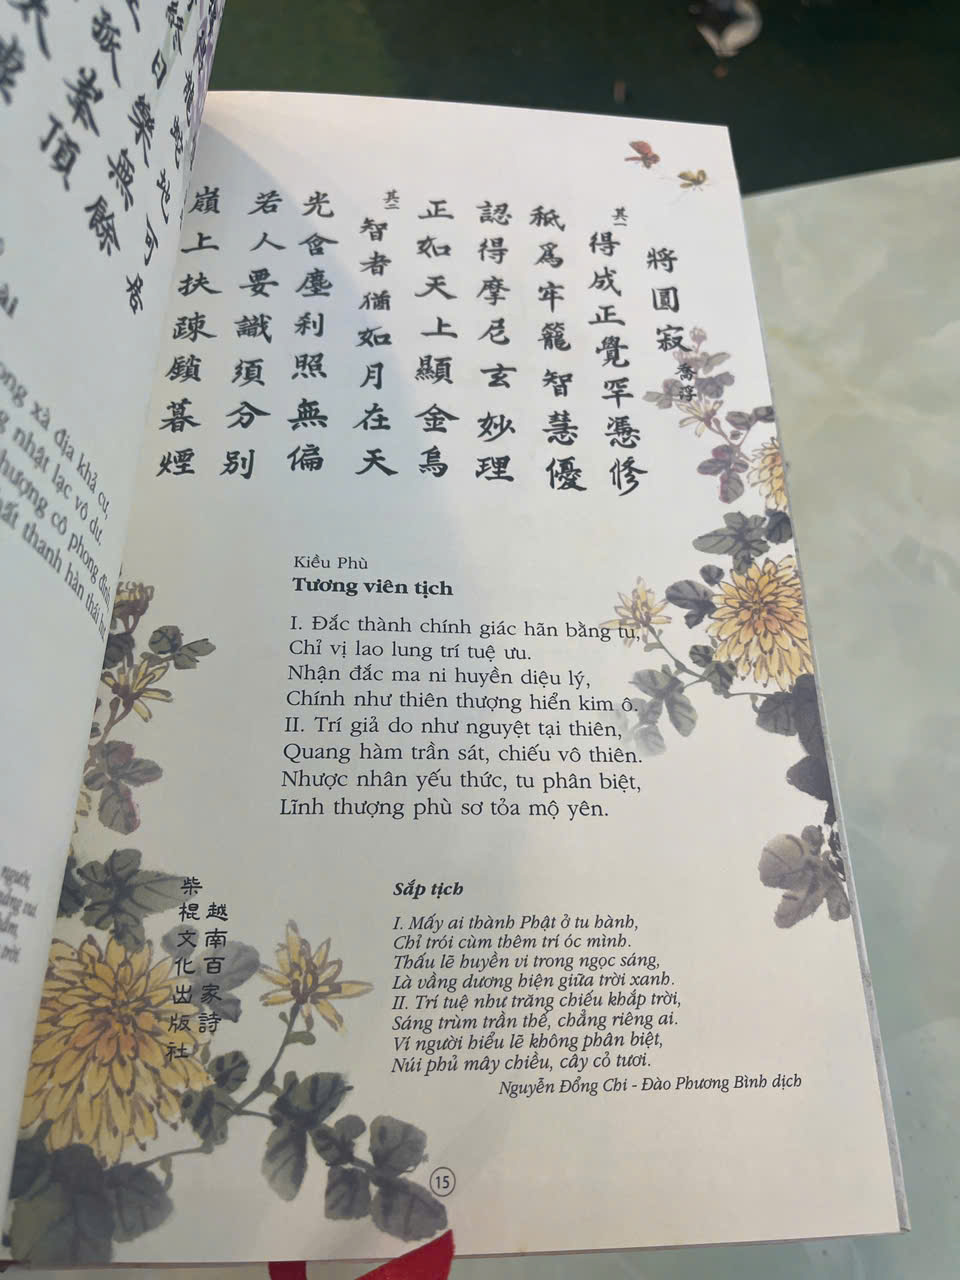 龍蛇地可居
日樂無餘
峯頂
ong xà địa khả cư,
nhật lạc vô dư.
thượng cô phong đỉnh,
thanh hàn thái hư.
người,
trời.
將圓寂
喬浮
其一
得成正覺罕憑修
秖爲牢籠智慧優
認得摩尼玄妙理
正如天上顯金烏
其二
智者猶如月在天
光含塵剎照無偏
若人要識須分別
嶺上扶疎鎖暮煙
Kiều Phù
Tương viên tịch
I. Đắc thành chính giác hãn bằng tu,
Chỉ vị lao lung trí tuệ ưu.
Nhận đắc ma ni huyền diệu lý,
Chính như thiên thượng hiển kim ô.
II. Trí giả do như nguyệt tại thiên,
Quang hàm trần sát, chiếu vô thiên.
Nhược nhân yếu thức, tu phân biệt,
Lĩnh thượng phù sơ tỏa mộ yên.
Sắp tịch
I. Mấy ai thành Phật ở tu hành,
Chỉ trói cùm thêm trí óc mình.
Thấu lẽ huyền vi trong ngọc sáng,
Là vầng dương hiện giữa trời xanh.
II. Trí tuệ như trăng chiếu khắp trời,
Sáng trùm trần thế, chẳng riêng ai.
Ví người hiểu lẽ không phân biệt,
Núi phủ mây chiều, cây cỏ tươi.
Nguyễn Đổng Chi - Đào Phương Bình dịch
越南百家詩
柴棍文化出版社
15